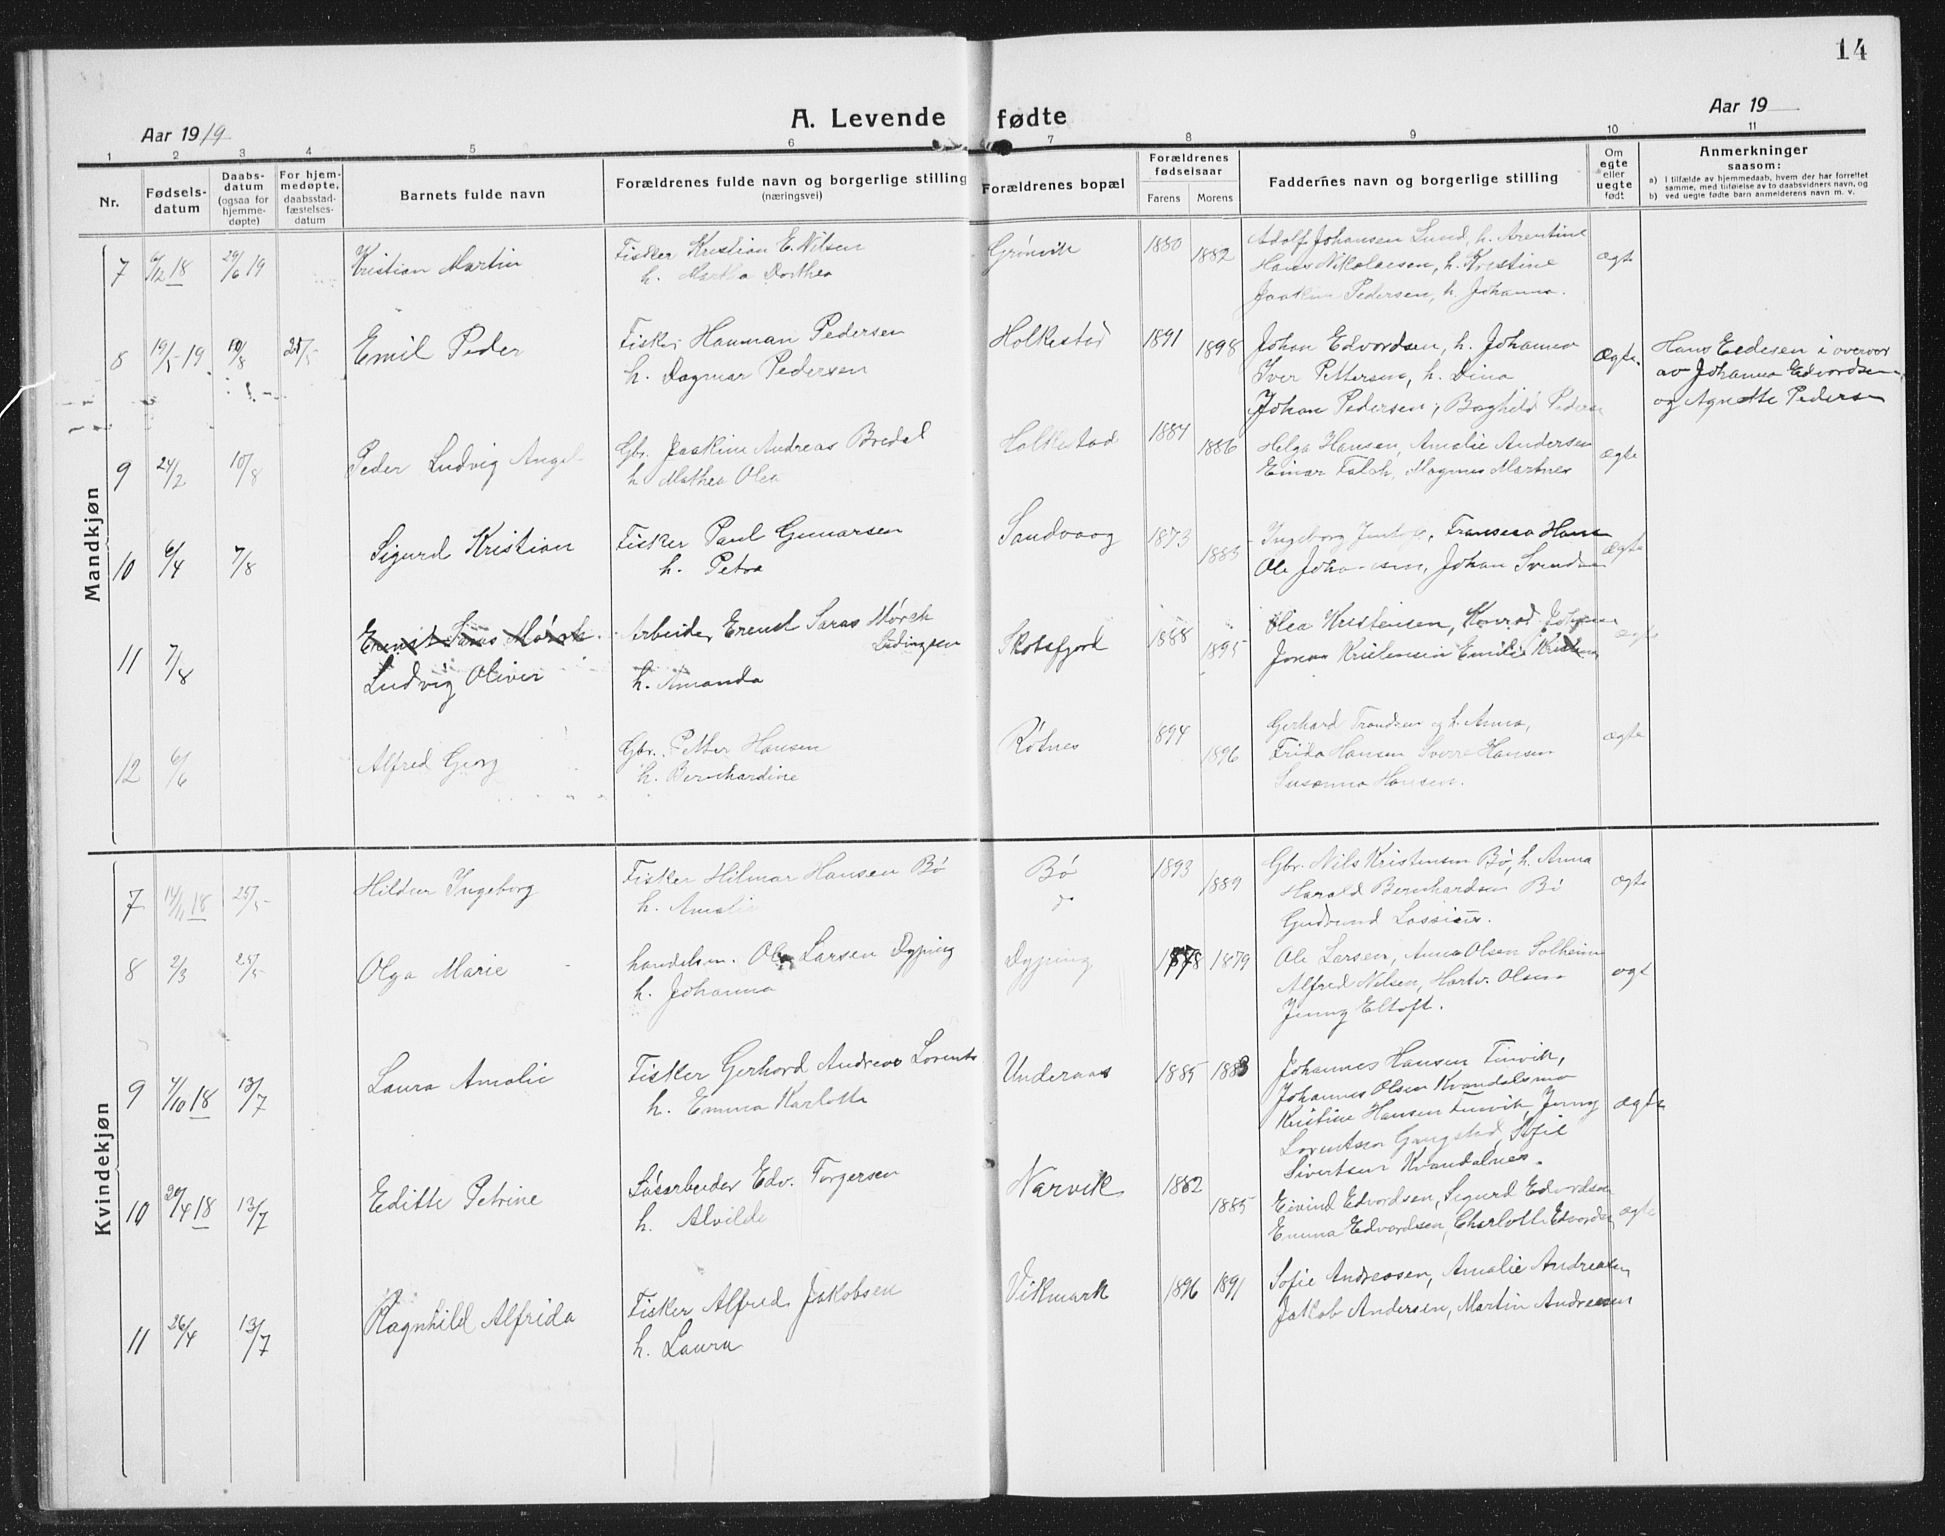 14
Aar 1919
A. Levende fødte
Aar 19
1 2 3 4 5 6 7 8 9 10 11
Nr.
Fødsels-
datum
Daabs-
datum
(ogsaa for
hjemme-
døpte)
For hjem-
medøpte,
daabsstad-
fæstelses-
datum
Barnets fulde navn
Forældrenes fulde navn og borgerlige stilling
(næringsvei)
Forældrenes bopæl
Forældrenes
fødselsaar
Farens Morens
Faddernes navn og borgerlige stilling
Om
egte
eller
uegte
født
Anmerkninger
saasom:
a) I tilfælde av hjemmedaab, hvem der har forrettet
samme, med tilføielse av to daabsvidners navn, og
b) ved uegte fødte barn anmelderens navn m. v.
Mandkjøn
7 6/12 18 29/6 19 Kristian Martin
Fisker Kristian E. Nilsen
h. Martha Dorthea
Grønvik 1880 1882
Adolf Johansen Lund, h. Arentine
Hans Nikolaisen, h. Kristine
Joakim Pedersen, h. Johanna.
ægte
8 19/5 19 10/8 25/5 Emil Peder
Fisker Hauman Pedersen
h. Dagmar Pedersen
Holkestad 1891 1898
Johan Edvardsen, h. Johanna
Iver Pettersen, h. Dina
Johan Pedersen, Borghild Peders
Ægte
Hans Eedesen i overvær
av Johanna Edvardsen
og Agnethe Pedersen
9 24/2 10/8 Peder Ludvig Angel
Gbr. Joakim Andreas Bredal
h Mathea Olea
Holkestad 1884 1886
Helga Hansen, Amalie Andersen
Einar Falch, Magnus Martnes
ægte
10 6/4 7/8 Sigurd Kristian
Fisker Paul Gunarsen
h. Petra
Sandvaag 1873 1883
Ingeborg Fransena Hans
Ole Johansen, Johan Svends
Ægte
11 7/8
Ernst Saras Mørch
Ludvig Oliver
Arbeider Ernst Saras Mørch
h. Amanda
Skotsfjord 1888 1895
Olea Kristensen, Konrad
Kristensen Emilie
ægte
12 6/6 Alfred Georg
Gbr. Petter Hansen
h. Bernhardine
Røtnes 1894 1896
Gerhard Trondsen og h. Anna,
Frida Hansen Sverre Hansen
Susanna Hansen.
ægte
Kvindekjøn
7 14/11 18 25/5 Hildur Ingeborg
Fisker Hilmar Hansen Bø
h. Amalie
Bø 1893 1889
Gbr. Nils Kristensen Bø, h. Anna
Harald Bernhardsen Bø
Gudrund Lassies.
ægte
8 2/3 25/5 Olga Marie
handelsm. Ole Larsen Dyping
h. Johanna
Dyping 1878 1879
Ole Larsen, Anna Olsen Solheim
Alfred Nilsen, Hartv. Olsen
Jenny Eltoft.
ægt
9 4/10 18 13/7 Laura Amalie
Fisker Gerhard Andreas Lorents
h. Emma Karlotte
Underaas 1885 1883
Johannes Hansen Finvik,
Johannes Olsen Kvandalsmo
Kristine Hansen Finvik, Jenny
Lorentsen Gangstad, Sofie
Sivertsen Kvandalnes.
ægte
10 20/4 18 13/7 Editte Petrine
Løsarbeider Edv. Torgersen
h. Alvilde
Narvik 1882 1885
Eivind Edvardsen, Sigurd Edvardsen
Emma Edvardsen, Charlotte Edvards
ægte
11 26/4 13/7 Ragnhild Alfrida
Fisker Alfred Jakobsen
h. Laura
Vikmark 1896 1891
Sofie Andreasen, Amalie Andreasen
Jakob Andersen, Martin Andreasen